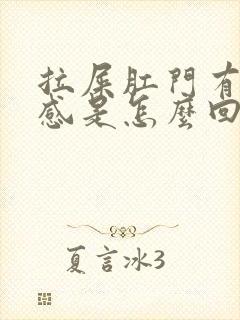 拉屎肛門有
感是怎麼回
夏言冰3